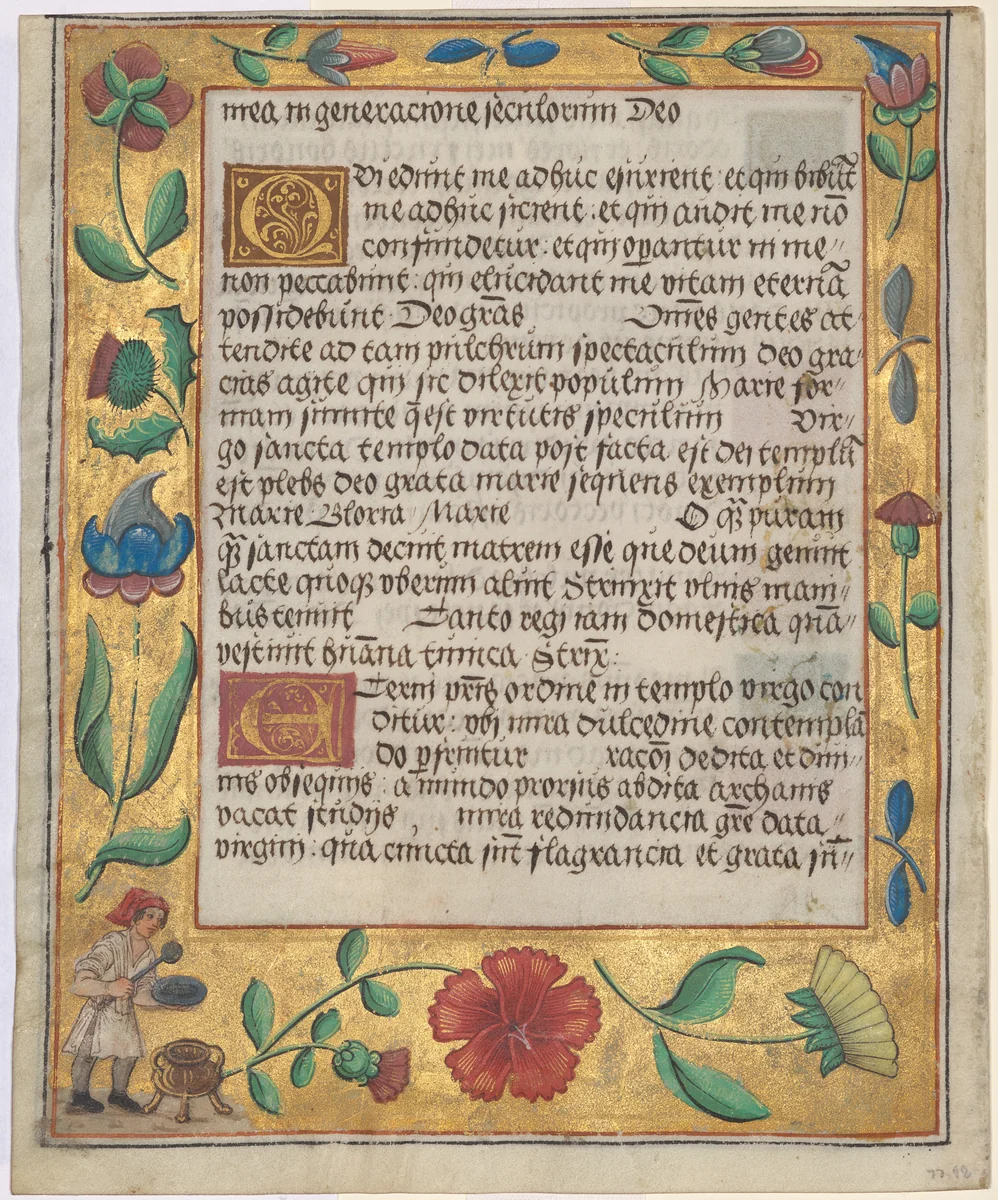 mea in generacione seculorum Deo
Qui edunt me adhuc esurient: et qui bibūt
me adhuc sicient: et qui audit me nō
confundetur: et qui opantur in me
non peccabunt: qui elucidant me vitam eternā
possidebunt. Deo grās Omēs gentes at-
tendite ad tam pulchrum spectaculum deo gra-
cias agite qui sic dilexit populum Marie for-
mam sumite q̄ est virtutis speculum Vir-
go sancta templo data post facta est dei templū
est plebs deo grata marie sequens exemplum
Marie Gloria Marie O q̄ puram
q̄ sanctam decuit matrem esse que deum genuit
lacte quoq vberum aluit Strinxit vlnis mani-
bus tenuit Tanto regi iam domestica quā
vestiuit huāna tunica Strix:
Eterni pr̄is ordine in templo virgo con
ditur: vbi mira dulcedine contemplā
do pfruitur racōi dedita et diui-
nis obsequijs: a mundo prorsus abdita archanis
vacat studijs, mira redundancia grē data
virgini: qua cuncta sūt flagrancia et grata
77.92